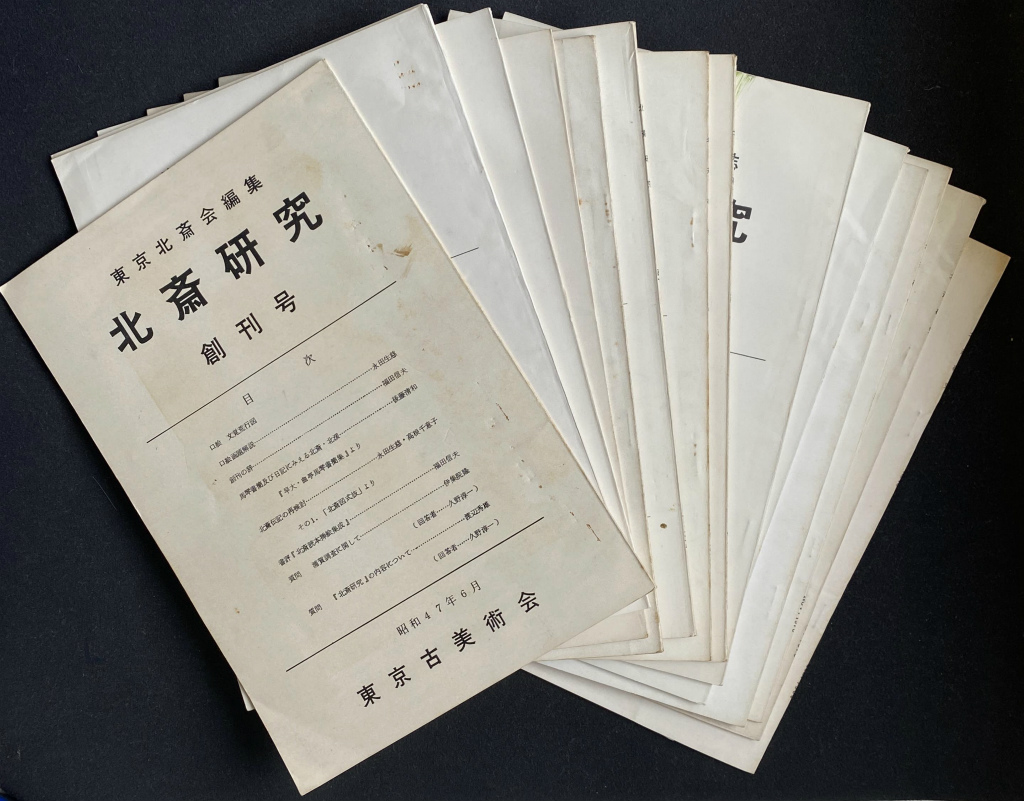 東京北斎会編集
北斎研究
創刊号
目次
口絵 文覚荒行図
口絵画題解説……永田生慈
創刊の辞……福田信夫
馬琴書簡及び日記にみえる北斎・北渓……後藤清和
『早大・曲亭馬琴書簡集』より
北斎伝記の再検討……永田生慈・高坂千重子
その1、「北斎図式版」より
書評『北斎読本挿絵集成』……福田信夫
質問 落款調査に関して……伊集院隆
(回答者……久野淳一)
質問 『北斎研究』の内容について……渡辺秀雄
(回答者……久野淳一)
昭和47年6月
東京古美術会
究